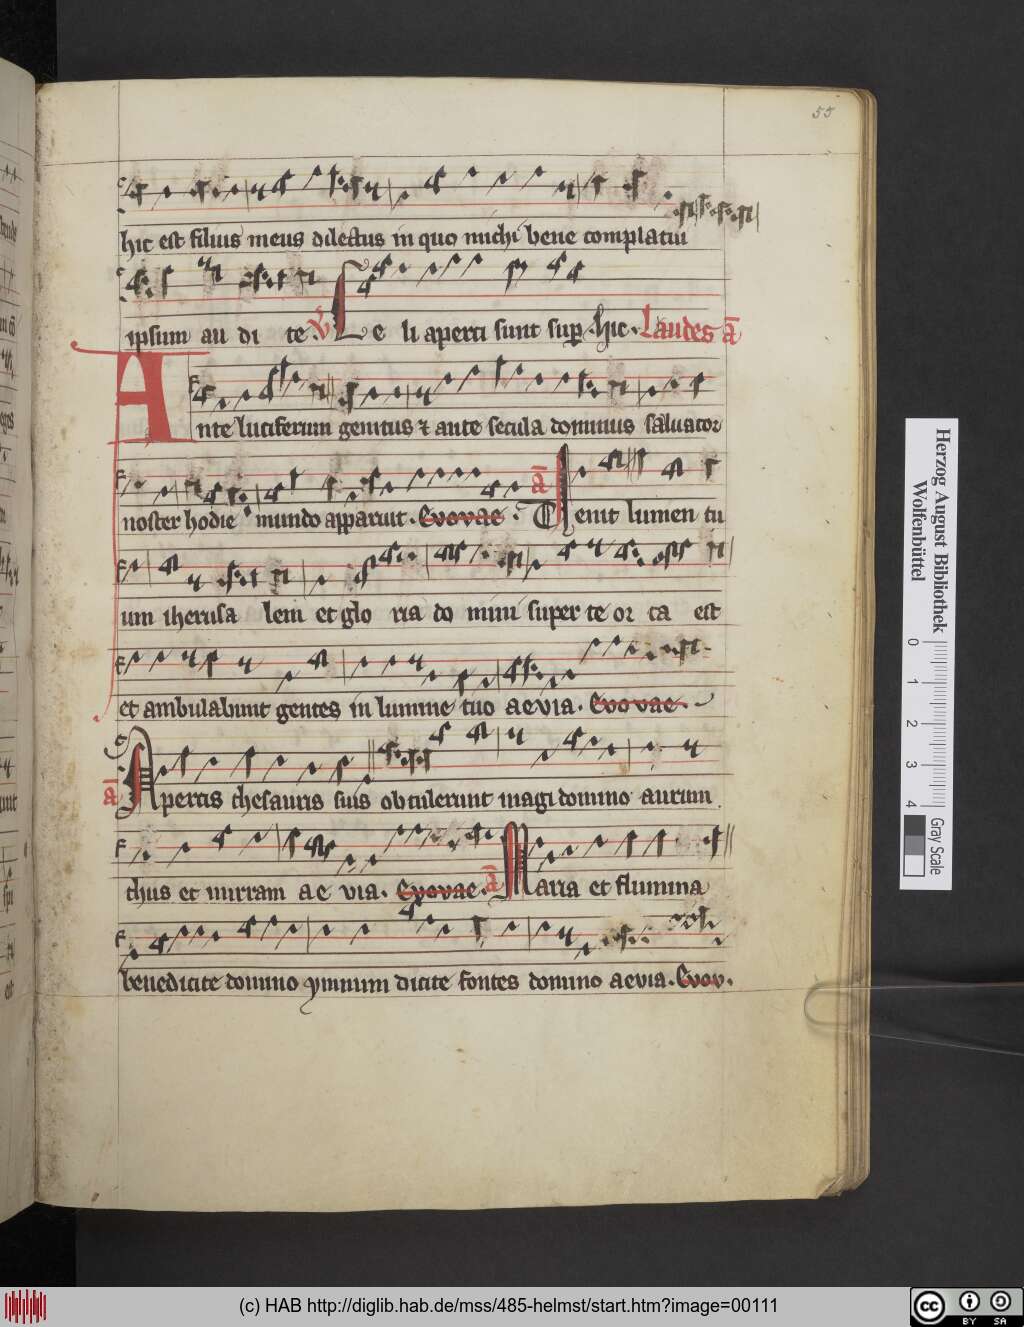 55
hic est filius meus dilectus in quo michi bene complatui
ipsum au di te. V Le li aperti sunt sup. hic. Laudes ā
Ante luciferum genitus ⁊ ante secula dominus saluator
noster hodie mundo apparuit. Evovae. ā Venit lumen tu
um iherusa lem et glo ria do mini super te or ta est
et ambulabunt gentes in lumine tuo aevia. Evovae.
ā Apertis thesauris suis obtulerunt magi domino aurum
thus et mirram ae via. Evovae. ā Maria et flumina
benedicite domino ymnum dicite fontes domino aevia. Evov.
Herzog August Bibliothek
Wolfenbüttel
0 1 2 3 4
Gray Scale
(c) HAB http://diglib.hab.de/mss/485-helmst/start.htm?image=00111
cc BY SA